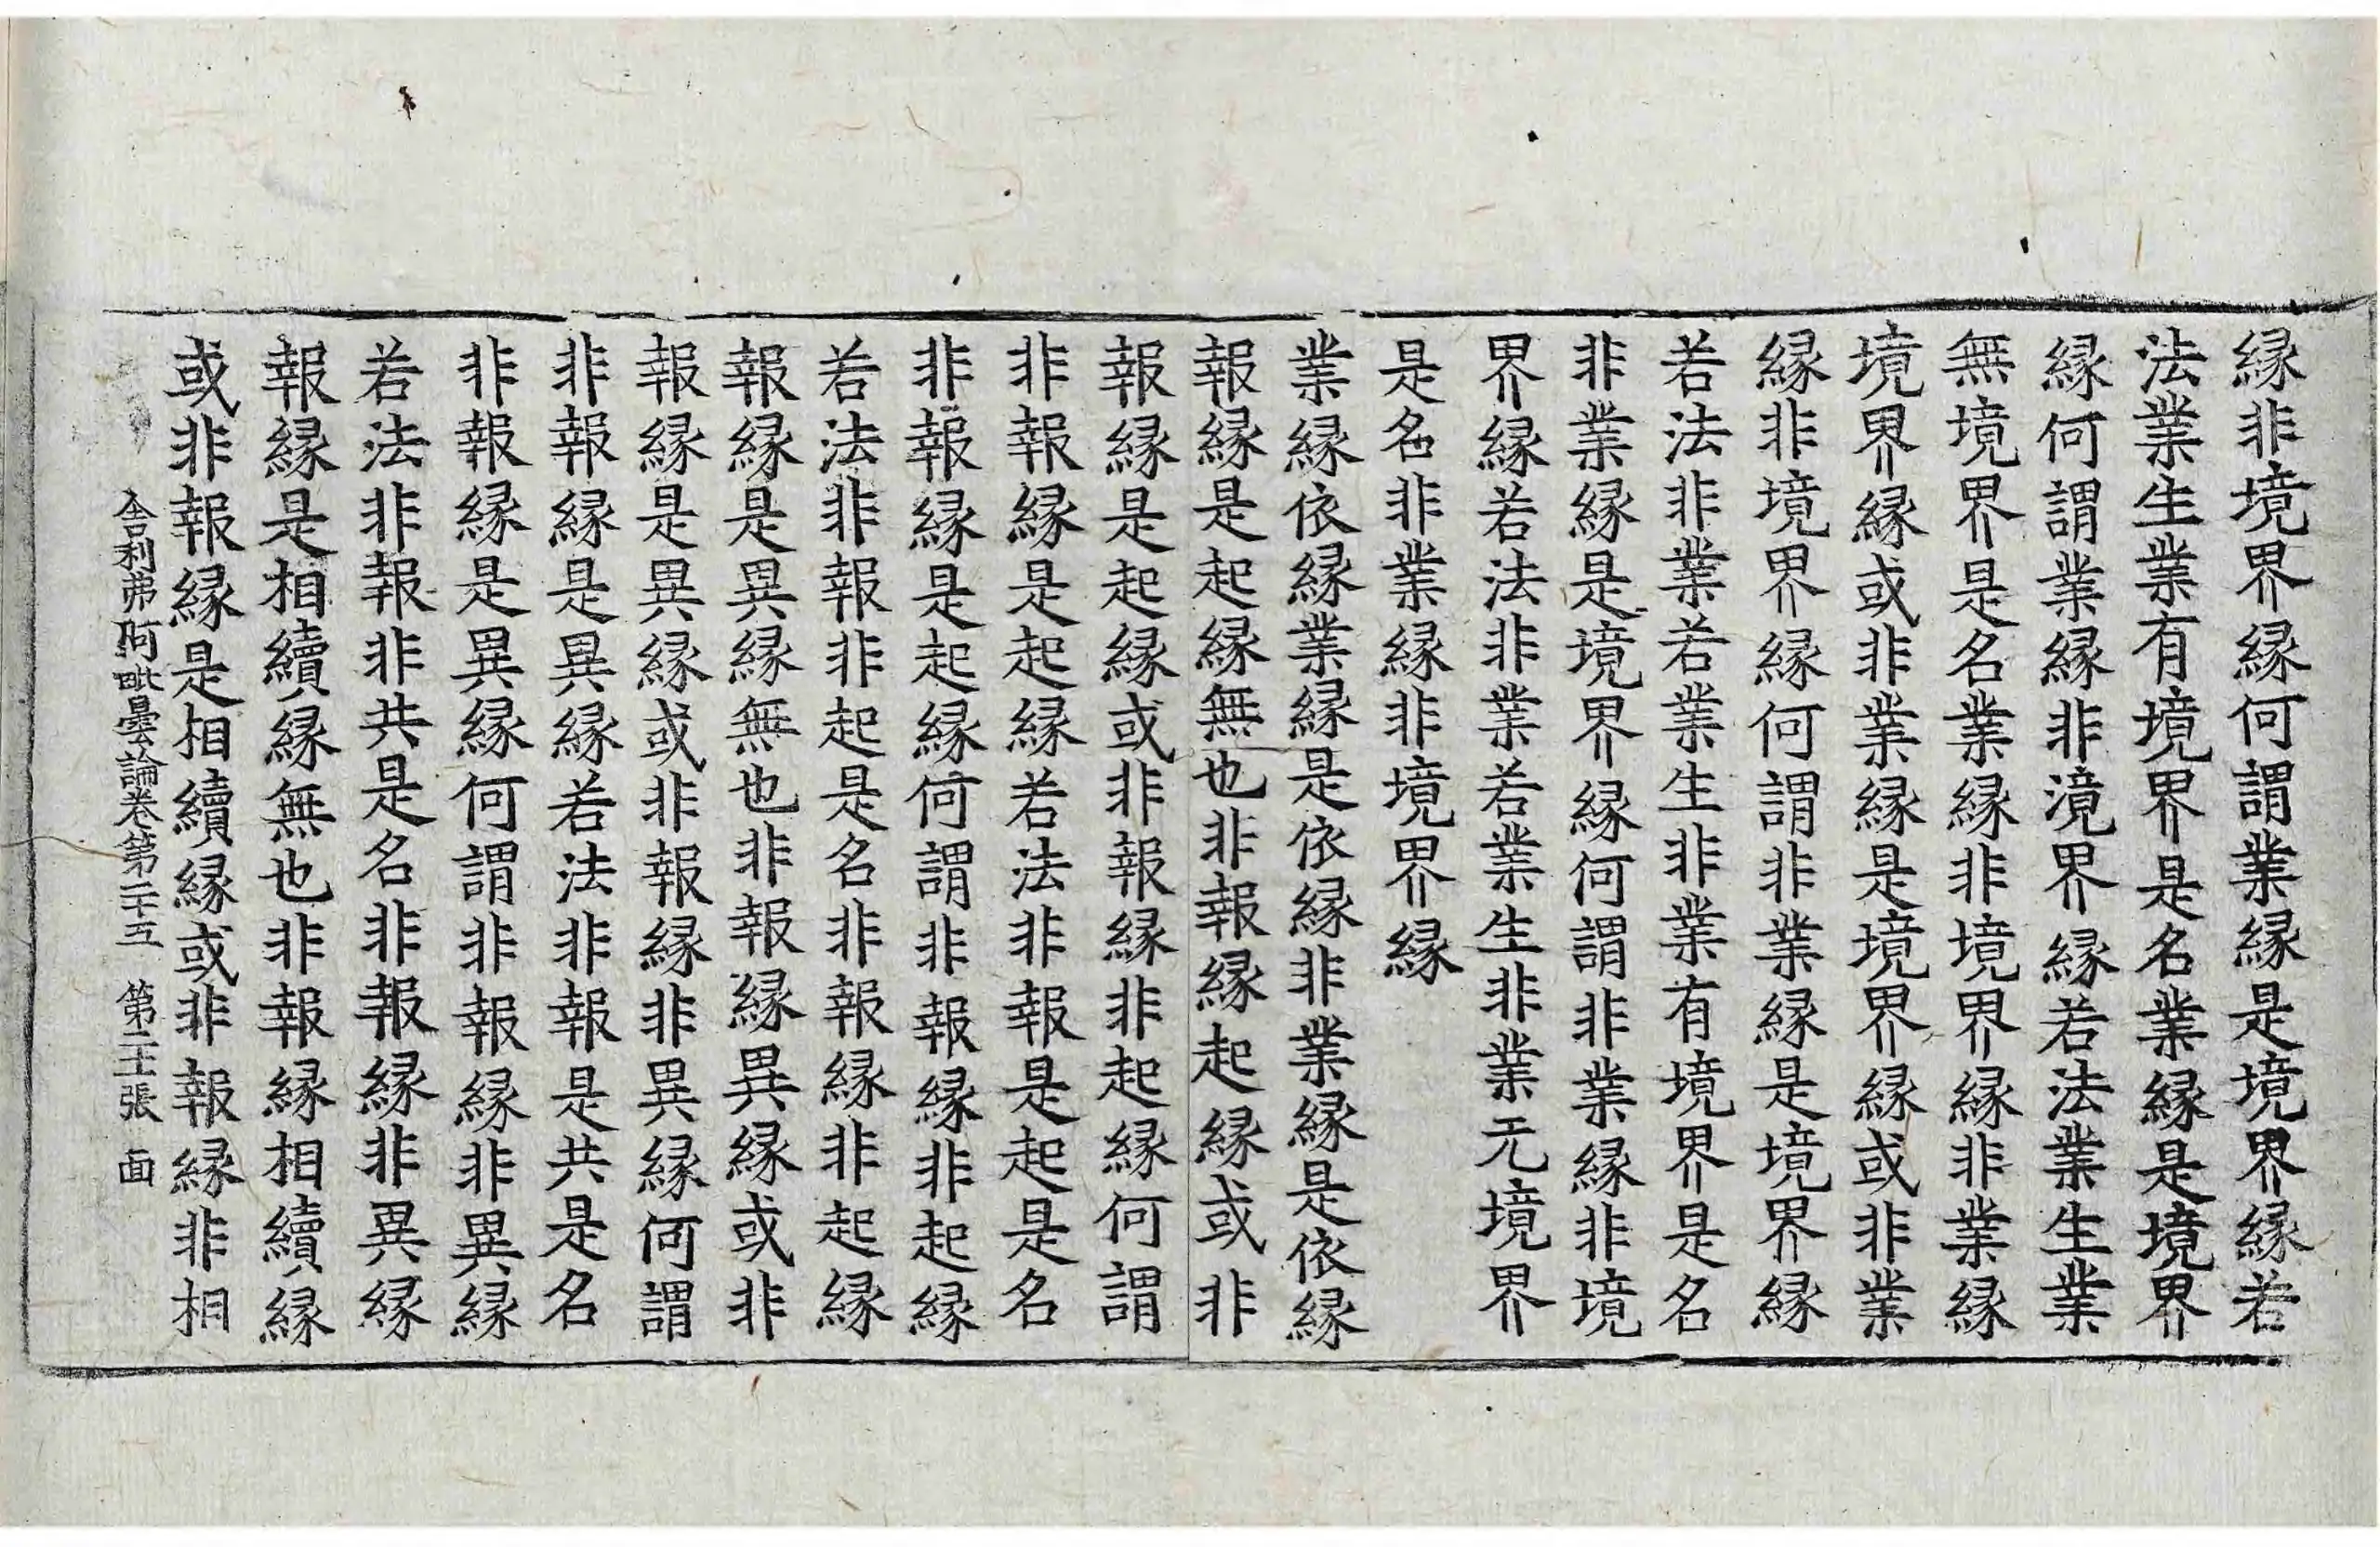 緣非境界緣何謂業緣是境界緣若
法業生業有境界是名業緣是境界
緣何謂業緣非境界緣若法業生業
無境界是名業緣非境界緣非業緣
境界緣或非業緣是境界緣或非業
緣非境界緣何謂非業緣是境界緣
若法非業若業生非業有境界是名
非業緣是境界緣何謂非業緣非境
界緣若法非業若業生非業无境界
是名非業緣非境界緣
業緣依緣業緣是依緣非業緣是依緣
報緣是起緣無也非報緣起緣或非
報緣是起緣或非報緣非起緣何謂
非報緣是起緣若法非報是起是名
非報緣是起緣何謂非報緣非起緣
若法非報非起是名非報緣非起緣
報緣是異緣無也非報緣異緣或非
報緣是異緣或非報緣非異緣何謂
非報緣是異緣若法非報是共是名
非報緣是異緣何謂非報緣非異緣
若法非報非共是名非報緣非異緣
報緣是相續緣無也非報緣相續緣
或非報緣是相續緣或非報緣非相
舍利弗阿毗曇論卷第二十五 第二十張 面